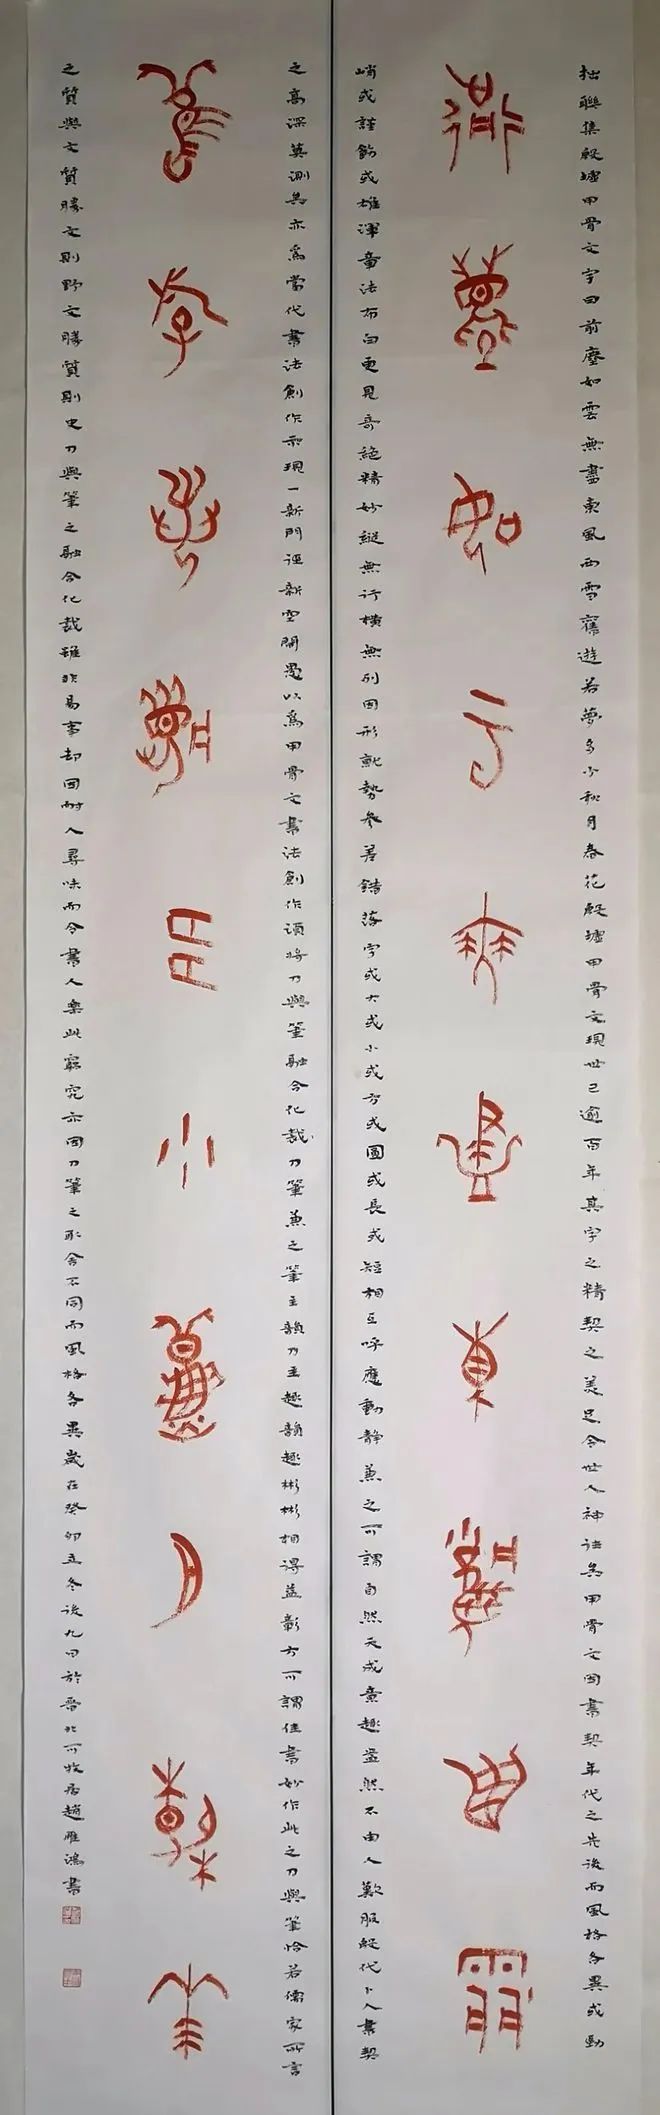 拙聯集殷墟甲骨文字曰前塵如雲無盡東風西雪舊遊若夢多少秋月春花殷墟甲骨文現世已逾百年其字之精契之美足令世人神往焉甲骨文因書契年代之先後而風格各異或勁
前塵如雲無盡東風西雪
峭或謹飭或雄渾章法布白更見奇絕精妙縱無行橫無列因形就勢參差錯落字或大或小或方或圓或長或短相互呼應動靜兼之可謂自然天成意趣盎然不由人歎服殷代卜人書契
之高深莫測焉亦爲當代書法創作示現一新門徑新空間愚以爲甲骨文書法創作須將刀與筆融合化裁刀筆兼之筆主韻刀主趣韻趣彬彬相得益彰方可謂佳書妙作此之刀與筆恰若儒家所言
舊遊若夢多少秋月春花
之質與文質勝文則野文勝質則史刀與筆之融合化裁雖非易事却因耐人尋味而令書人樂此窮究亦因刀筆之取舍不同而風格各異歲在癸卯立冬後九日於晉北可牧居趙雁鴻書